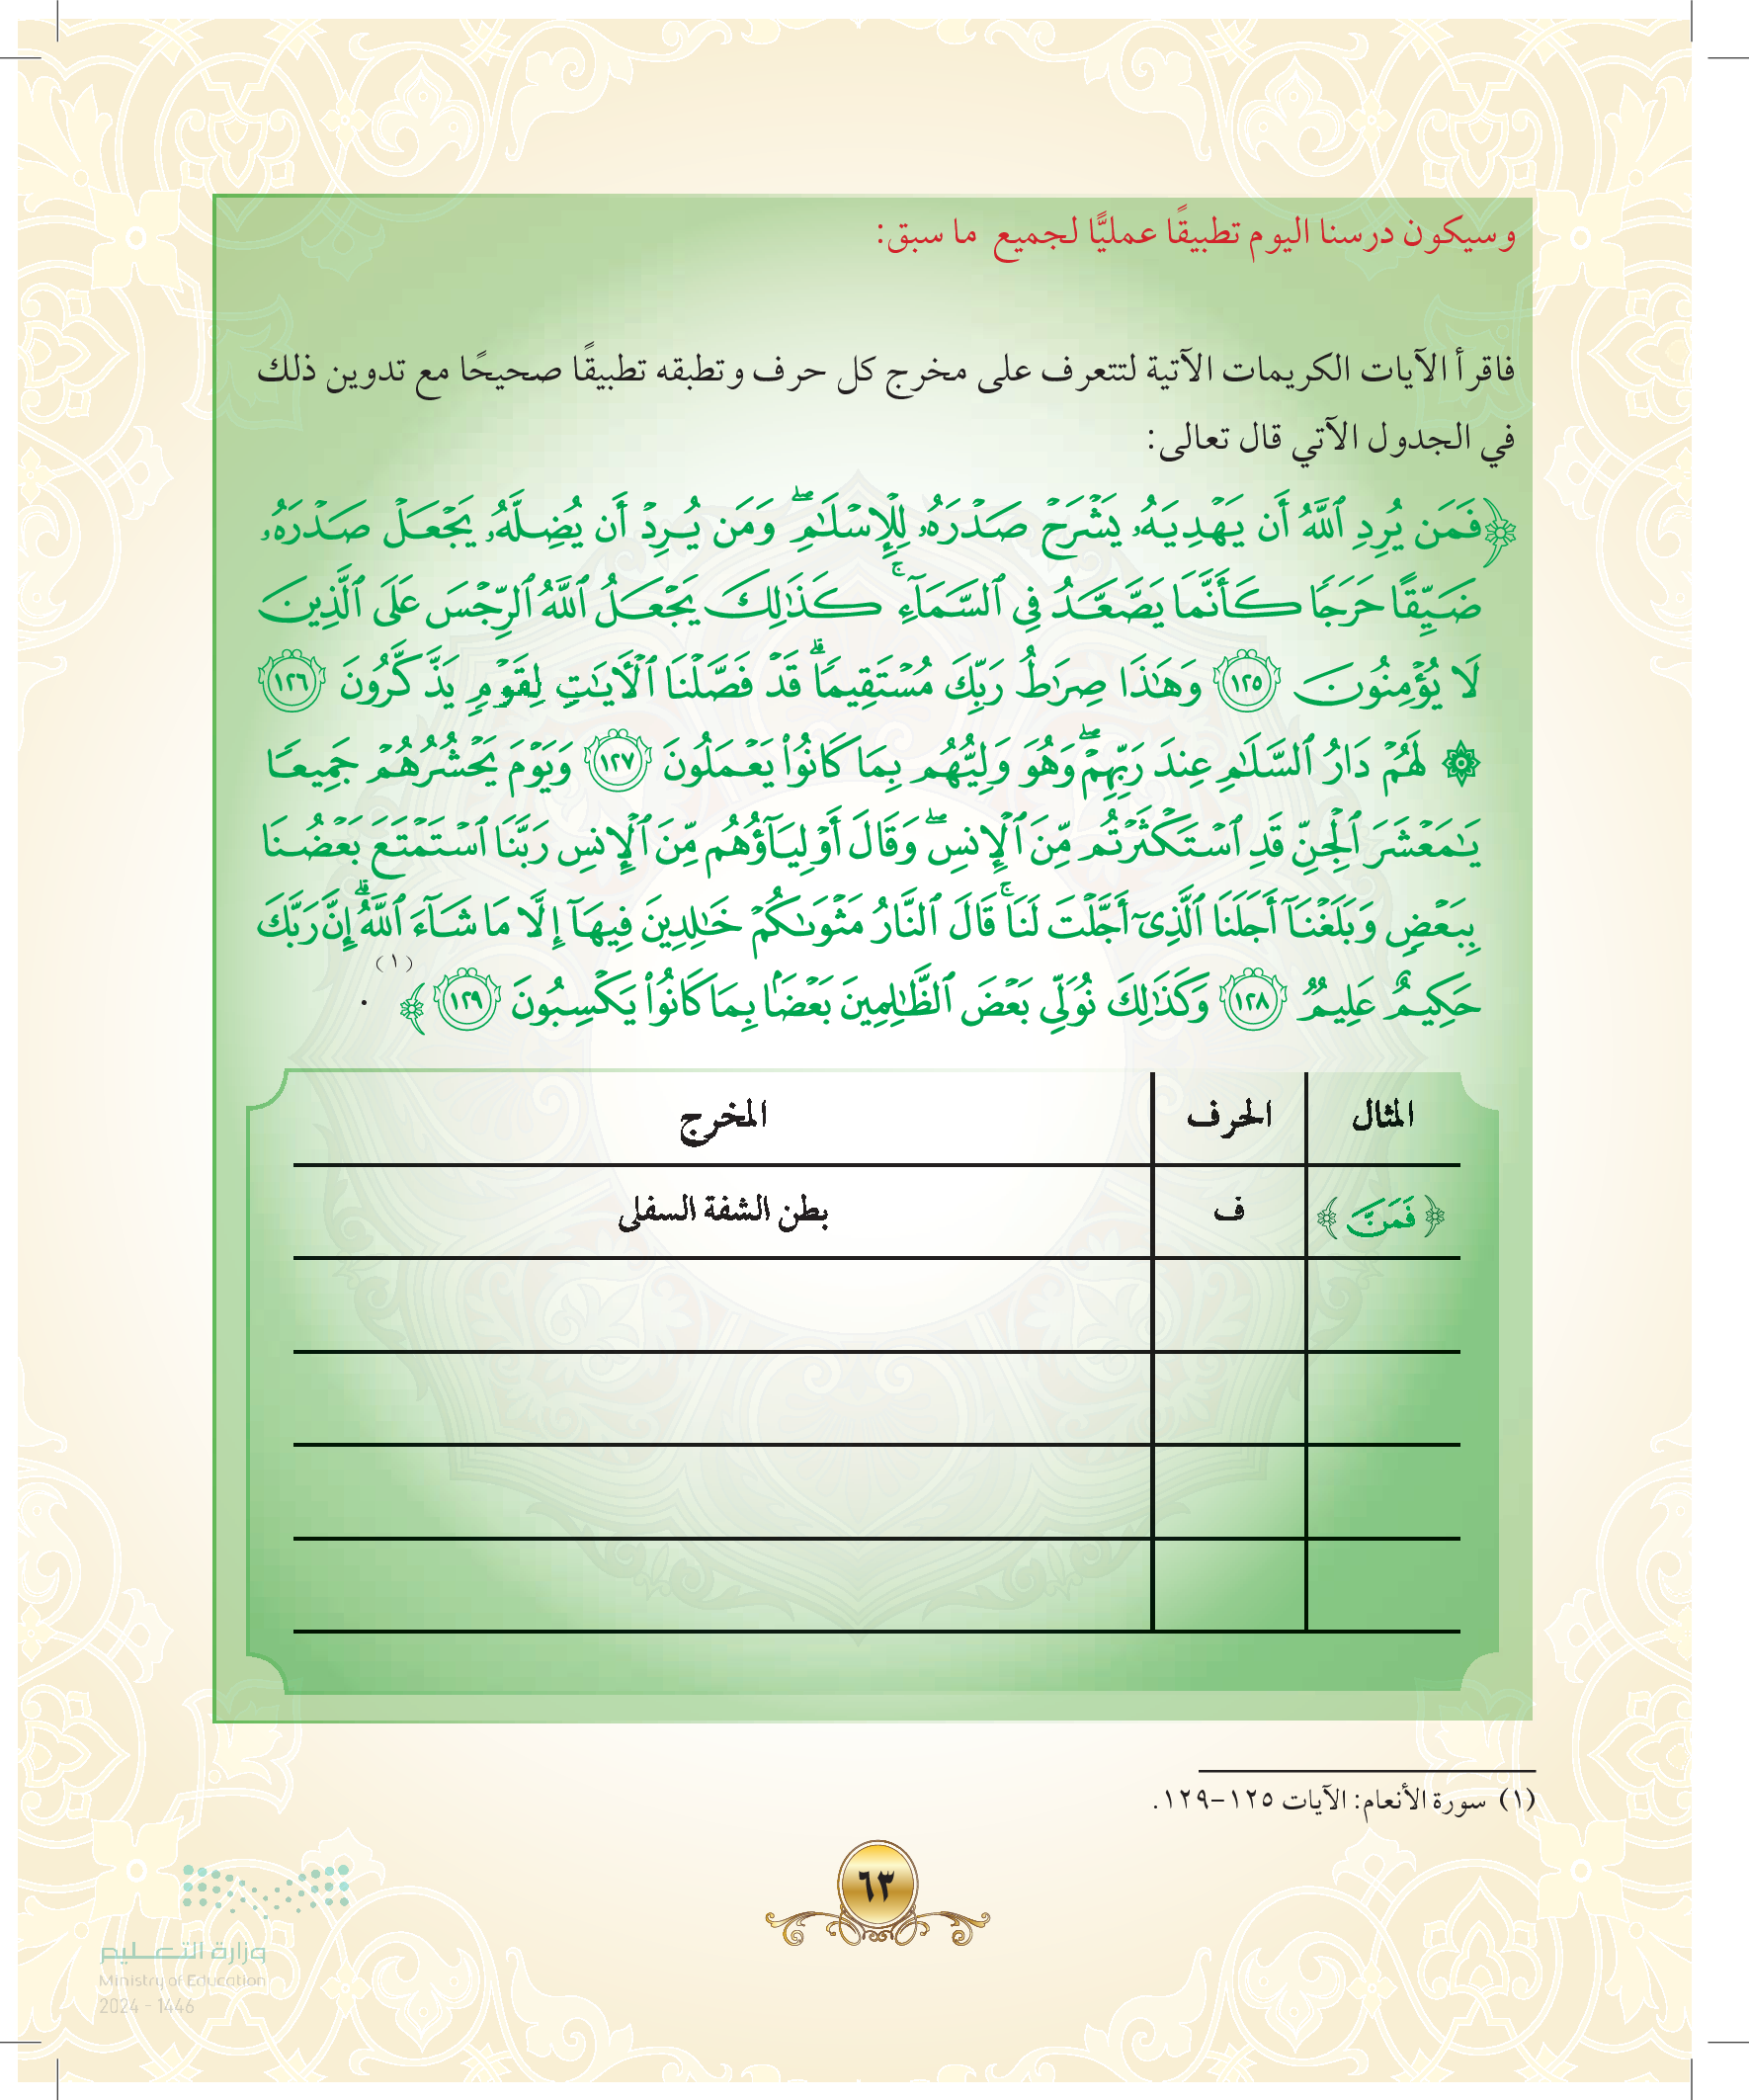 وسيكون درسنا اليوم تطبيقًا عمليًّا لجميع ما سبق:
فاقرأ الآيات الكريمات الآتية لتتعرف على مخرج كل حرف وتطبقه تطبيقًا صحيحًا مع تدوين ذلك
في الجدول الآتي قال تعالى:
﴿فَمَن يُرِدِ ٱللَّهُ أَن يَهۡدِيَهُۥ يَشۡرَحۡ صَدۡرَهُۥ لِلۡإِسۡلَٰمِۖ وَمَن يُرِدۡ أَن يُضِلَّهُۥ يَجۡعَلۡ صَدۡرَهُۥ
ضَيِّقًا حَرَجٗا كَأَنَّمَا يَصَّعَّدُ فِي ٱلسَّمَآءِۚ كَذَٰلِكَ يَجۡعَلُ ٱللَّهُ ٱلرِّجۡسَ عَلَى ٱلَّذِينَ
لَا يُؤۡمِنُونَ ١٢٥ وَهَٰذَا صِرَٰطُ رَبِّكَ مُسۡتَقِيمٗاۗ قَدۡ فَصَّلۡنَا ٱلۡأٓيَٰتِ لِقَوۡمٖ يَذَّكَّرُونَ ١٢٦
۞ لَهُمۡ دَارُ ٱلسَّلَٰمِ عِندَ رَبِّهِمۡۖ وَهُوَ وَلِيُّهُم بِمَا كَانُواْ يَعۡمَلُونَ ١٢٧ وَيَوۡمَ يَحۡشُرُهُمۡ جَمِيعٗا
يَٰمَعۡشَرَ ٱلۡجِنِّ قَدِ ٱسۡتَكۡثَرۡتُم مِّنَ ٱلۡإِنسِۖ وَقَالَ أَوۡلِيَآؤُهُم مِّنَ ٱلۡإِنسِ رَبَّنَا ٱسۡتَمۡتَعَ بَعۡضُنَا
بِبَعۡضٖ وَبَلَغۡنَآ أَجَلَنَا ٱلَّذِيٓ أَجَّلۡتَ لَنَاۚ قَالَ ٱلنَّارُ مَثۡوَىٰكُمۡ خَٰلِدِينَ فِيهَآ إِلَّا مَا شَآءَ ٱللَّهُۗ إِنَّ رَبَّكَ
حَكِيمٌ عَلِيمٞ ١٢٨ وَكَذَٰلِكَ نُوَلِّي بَعۡضَ ٱلظَّٰلِمِينَ بَعۡضَۢا بِمَا كَانُواْ يَكۡسِبُونَ ١٢٩﴾ (١).
المثال الحرف المخرج
﴿فَمَنۡ﴾ ف بطن الشفة السفلى
(١) سورة الأنعام: الآيات ١٢٥-١٢٩.
٦٣
وزارة التعـليم
Ministry of Education
2024 - 1446